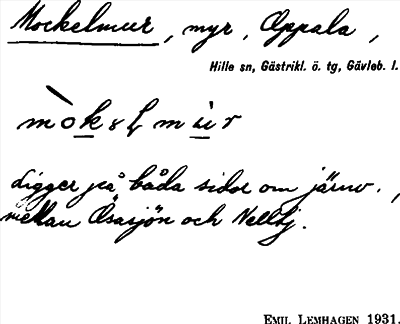 Mockelmur, myr, Oppala,
Hille sn, Gästrikl. ö. tg, Gävleb. l.
ligger på båda sidor om järnv.,
mellan Össjön och
EMIL LEMHAGEN 1931.